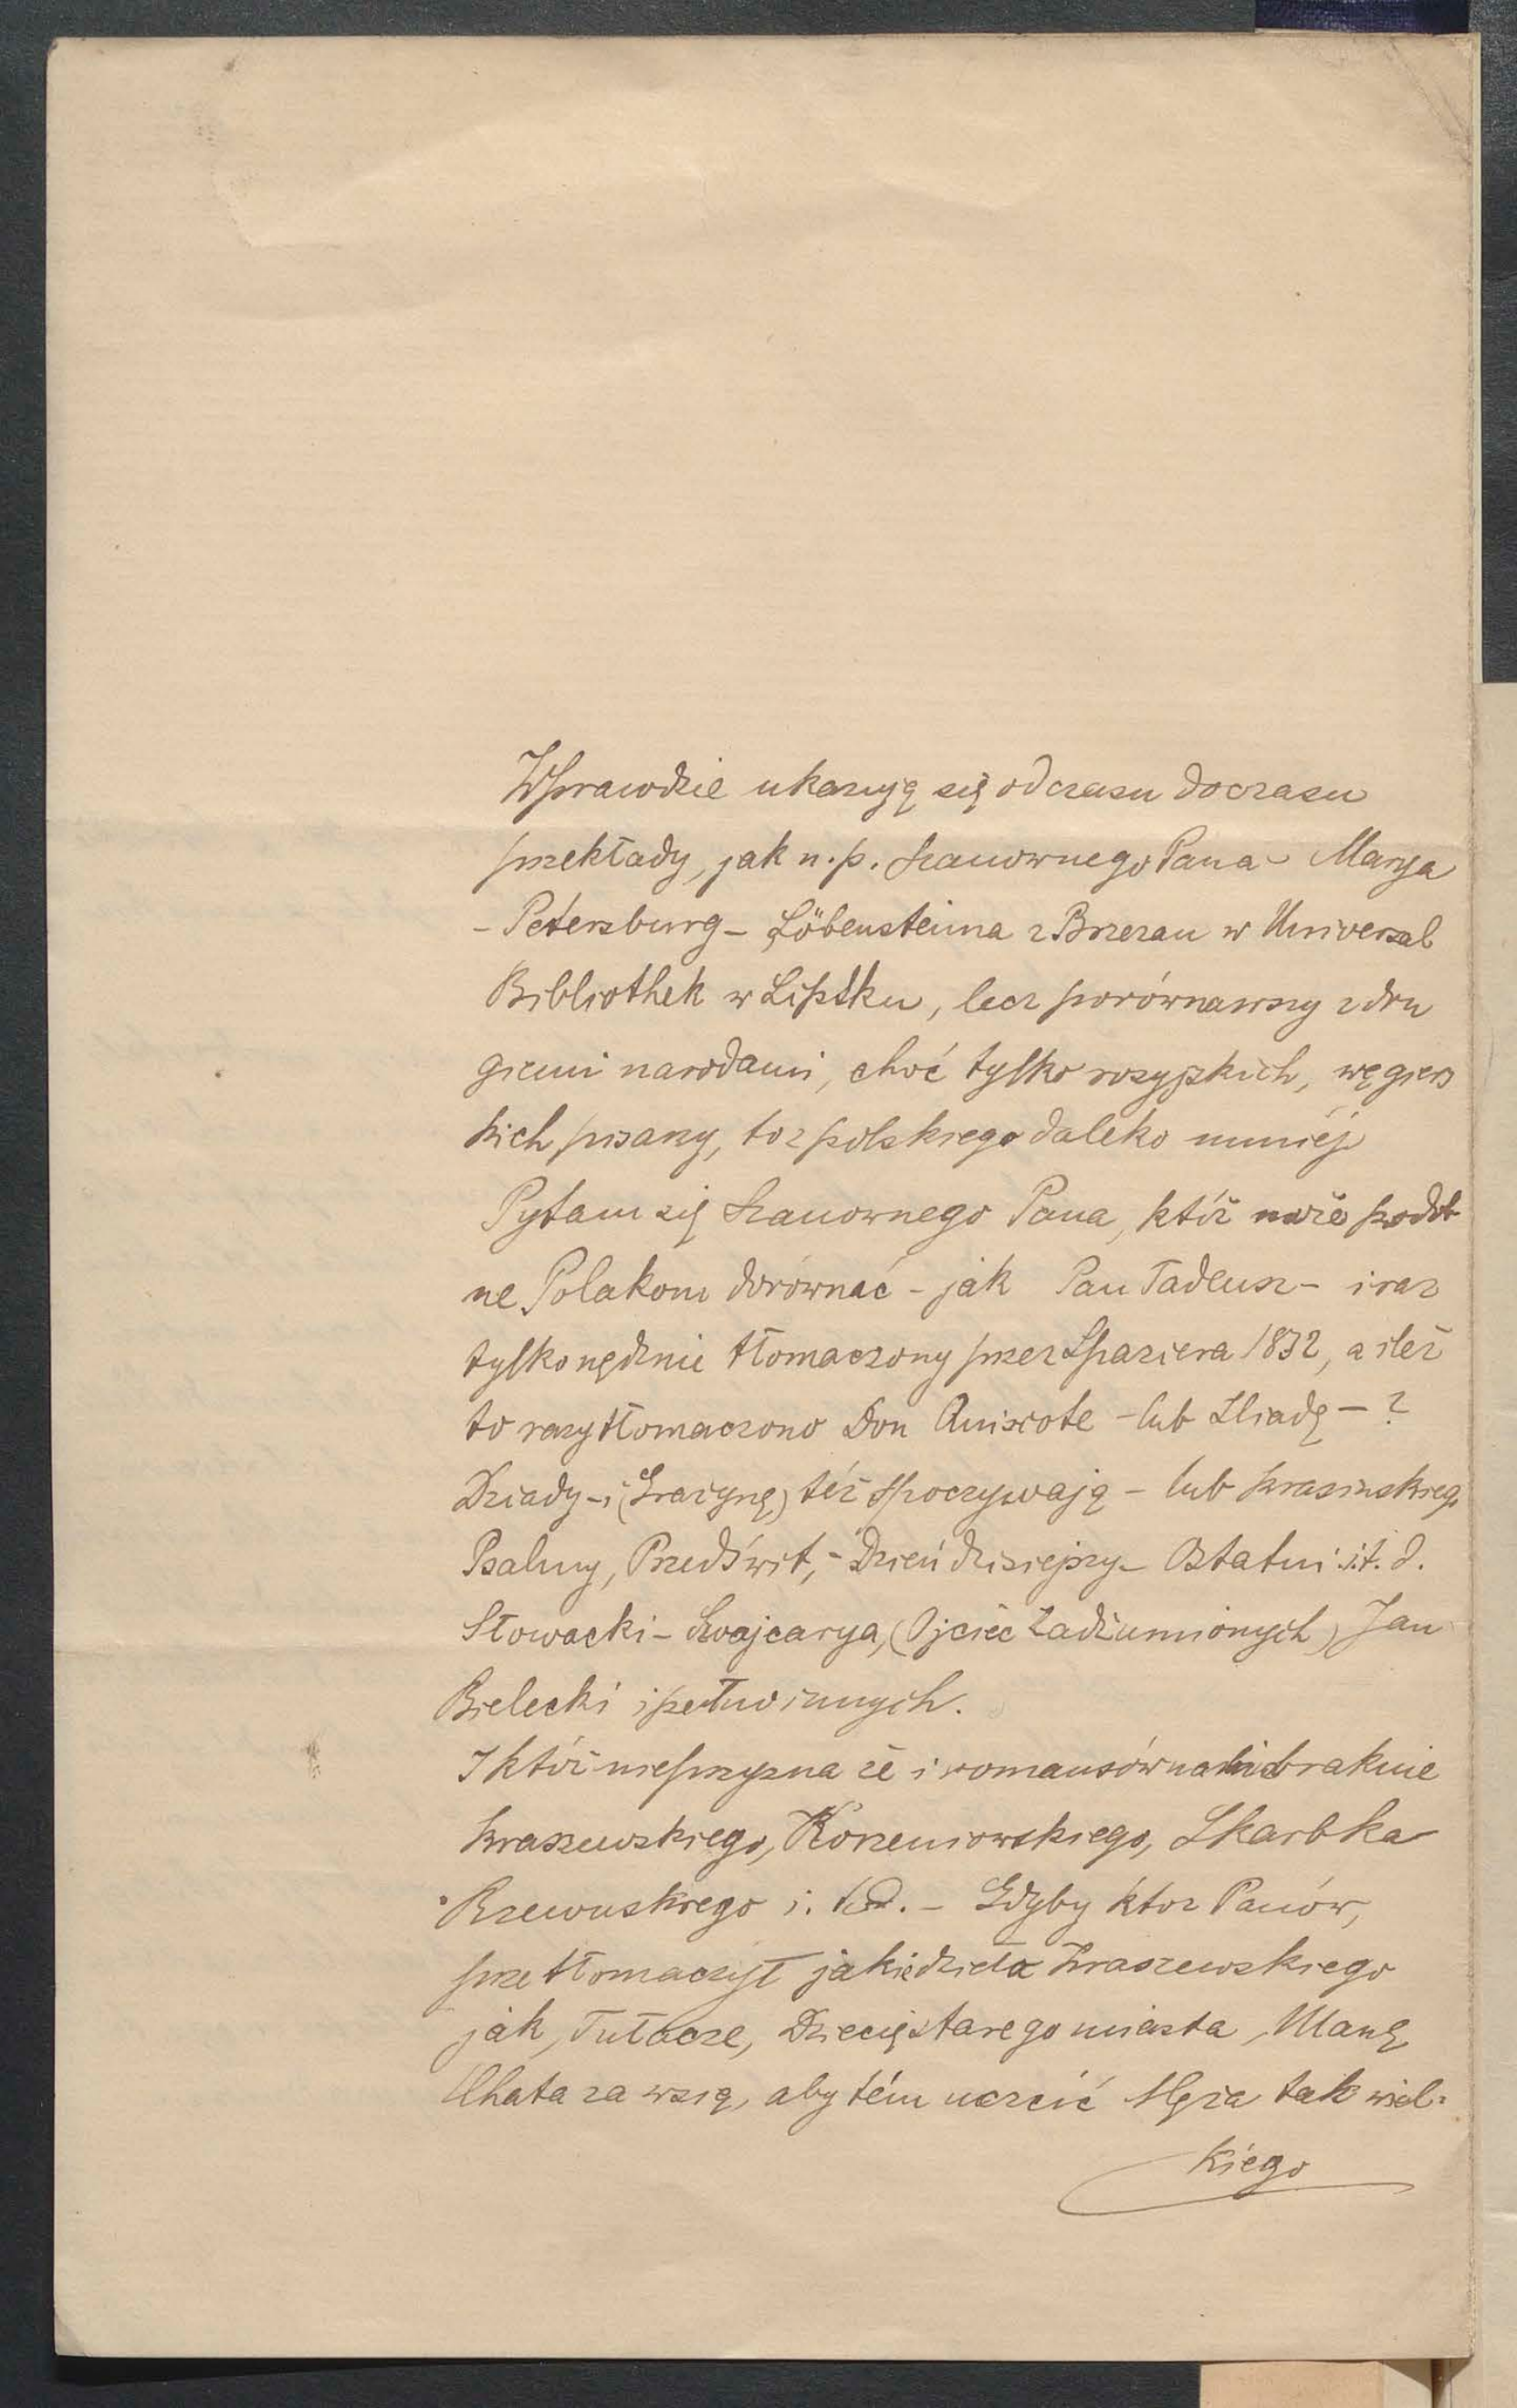 Wprawdzie ukazują się od czasu do czasu
przekłady, jak n.p. Szanownego Pana - Marya
- Petersburg - Löbensteina z Brzezan w Universal
Bibliothek w Lipsku, lecz porównawszy z dru
giemi narodami, choć tylko rosyjskich, węgiers
kich pisarzy, to z polskiego daleko mniéj
Pytam się Szanownego Pana, któż może podob
ne Polakom dorównać - jak Pan Tadeusz - i raz
tylko nędznie tłomaczony przez Spaziera 1832, a ileż
to razy tłomaczono Don Quixote - lub Iliadę - ?
Dziady - i (Grażynę) téż spoczywają - lub Krasinskiego
Psalmy, Przedświt, - Dzień dzisiejszy - Ostatni i.t.d.
Słowacki - Szwajcarya, (Ojciec Zadżumionych) Jan
Bielecki i pełno innych.
I któż nieprzyzna że i romansów nam niebraknie
Kraszewskiego, Korzeniowskiego, Skarbka
Rzewuskiego i. t. d. - Gdyby ktoz Panów,
przetłomaczył jakie dzieła Kraszewskiego
jak, Tułacze, Dziecię starego miasta, Ulanę,
Chata za wsią, aby tém uczcić Męża tak wiel-
kiego